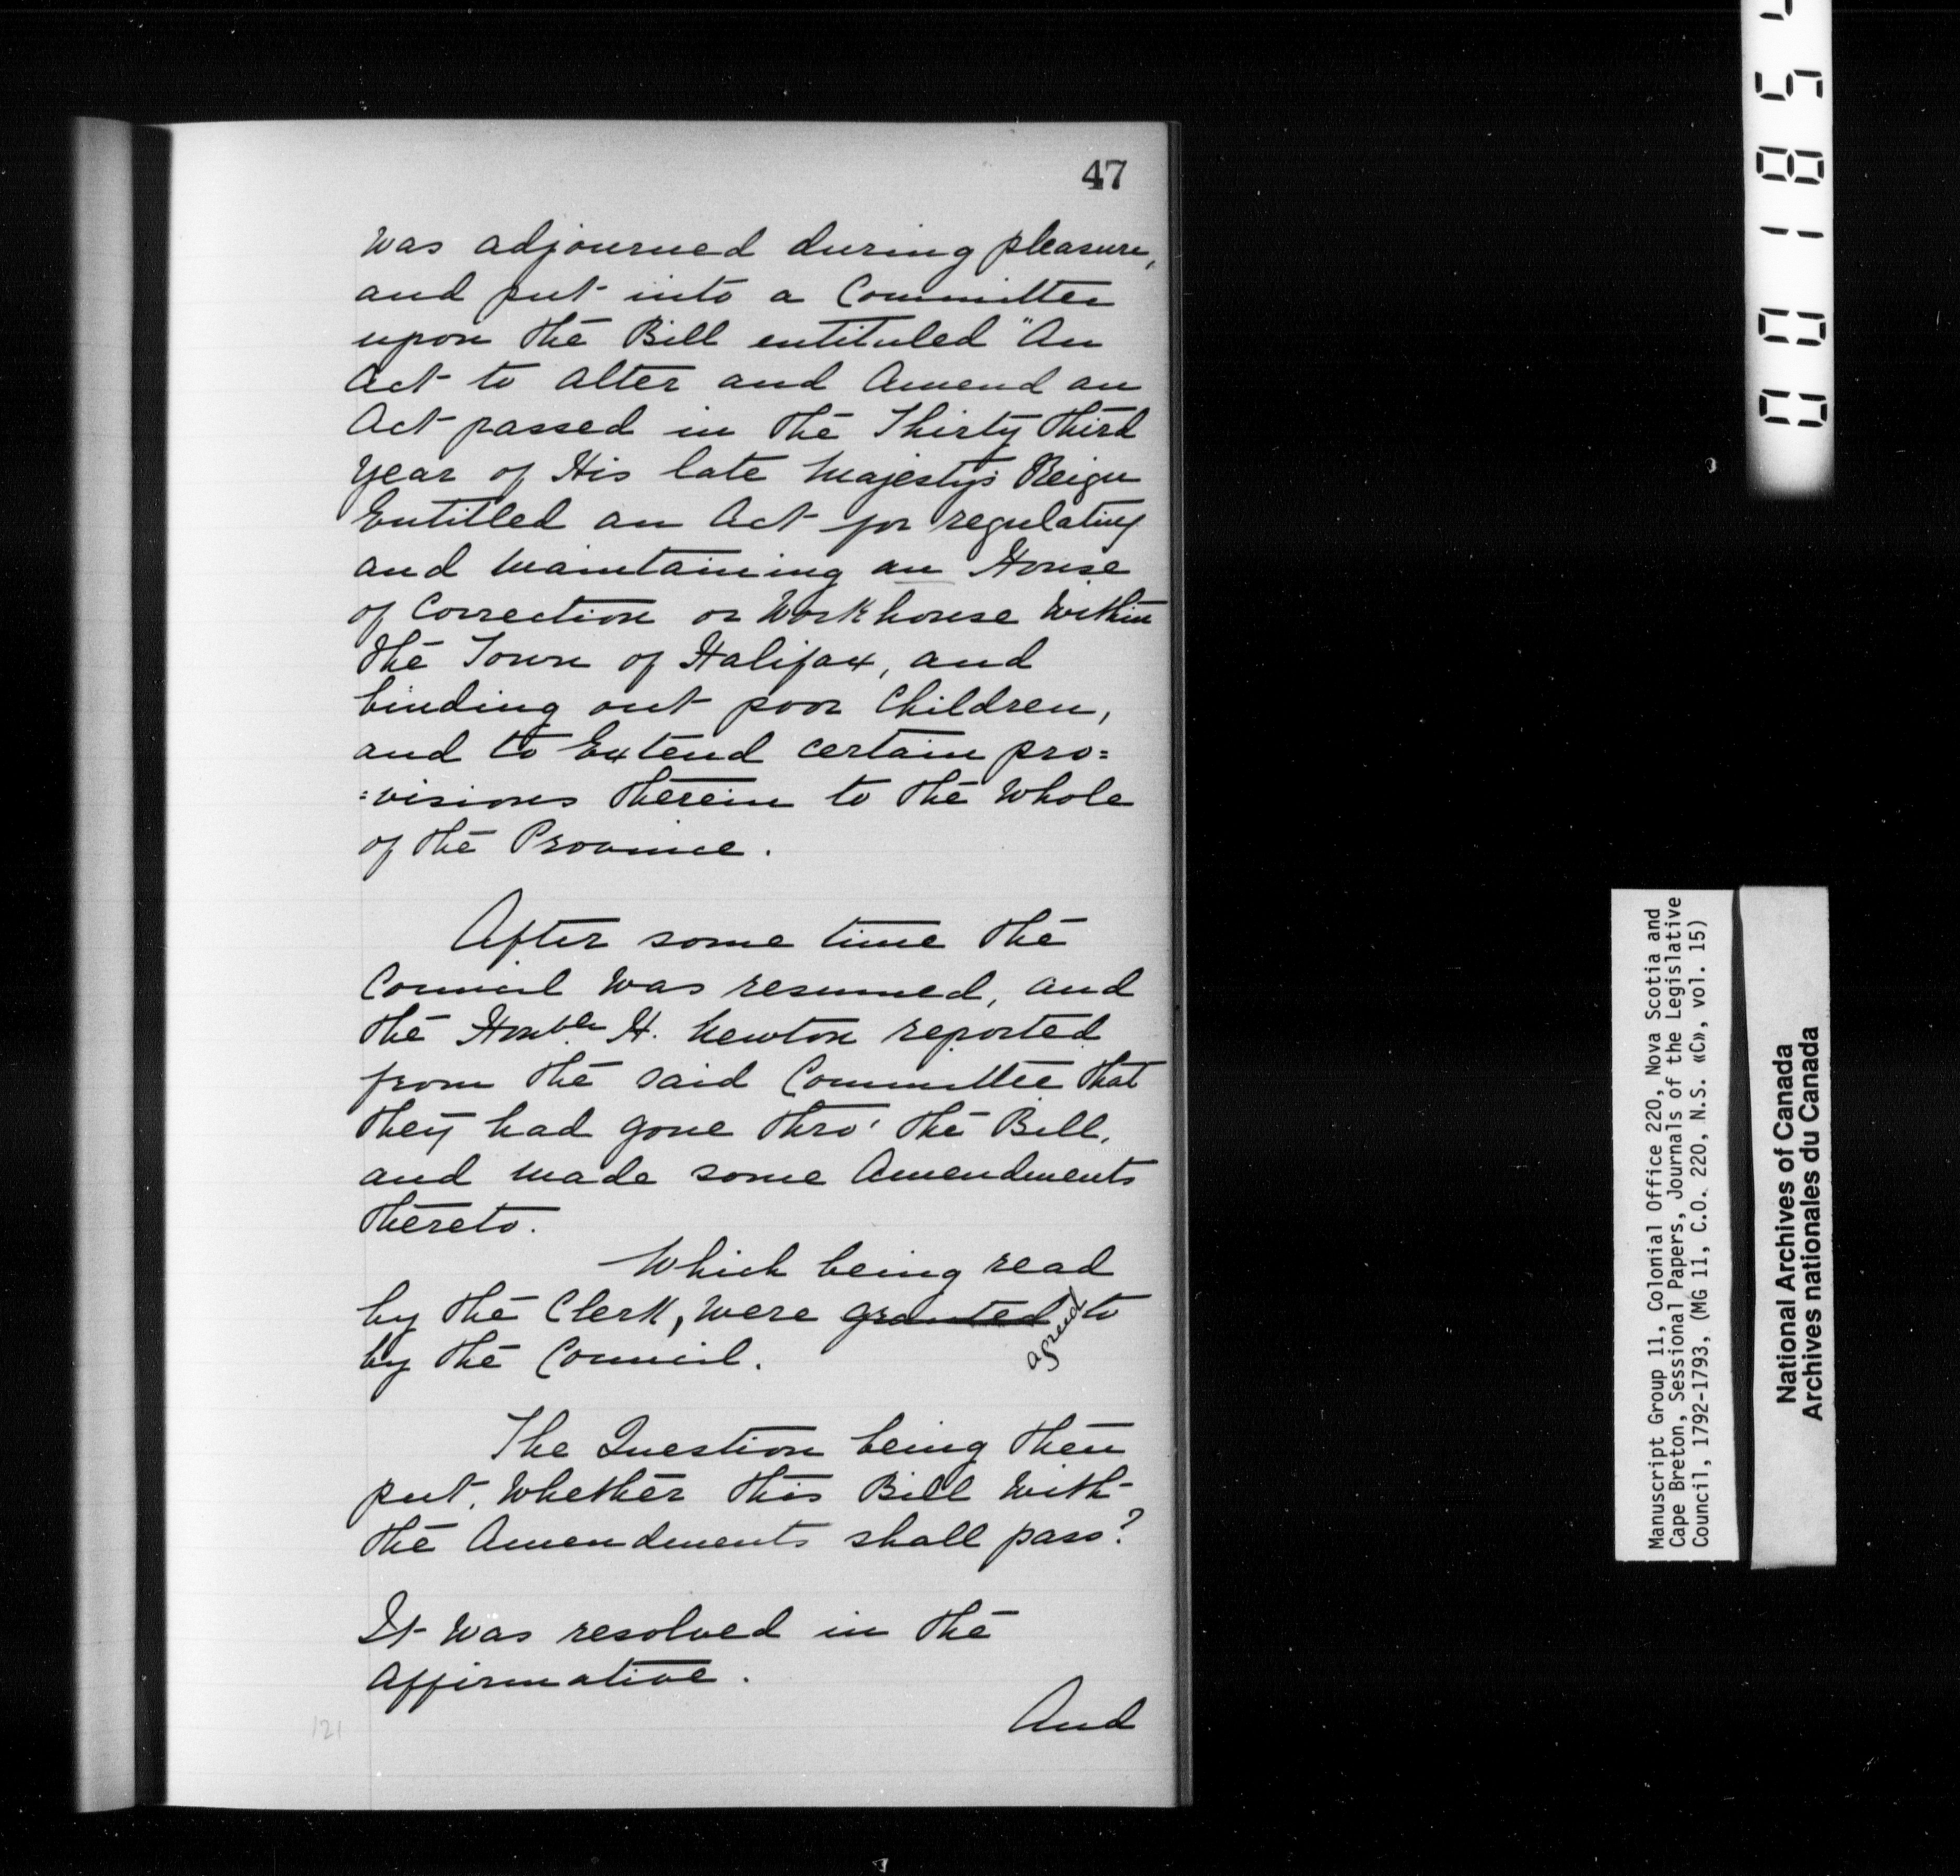 47
was adjourned during pleasure,
and put into a Committee
upon the Bill entituled "An
Act to alter and Amend an
Act passed in the Thirty third
year of His late Majesty's Reign
Entitled an Act for regulating
and maintaining an House
of Correction or Workhouse within
the Town of Halifax, and
binding out poor Children,
and to Extend certain pro=
=visions therein to the Whole
of the Province.
After some time the
Council was resumed, and
the Honble. H. Newton reported
from the said Committee that
they had gone thro' the Bill,
and made some Amendments
thereto.
Which being read
by the Clerk, were granted agreed to
by the Council.
The Question being then
put, Whether this Bill with
the Amendments shall pass?
It was resolved in the
affirmative.
And
121
Manuscript Group 11, Colonial Office 220, Nova Scotia and
Cape Breton, Sessional Papers, Journals of the Legislative
Council, 1792-1793, (MG 11, C.O. 220, N.S. «C», vol. 15)
National Archives of Canada
Archives nationales du Canada
00185